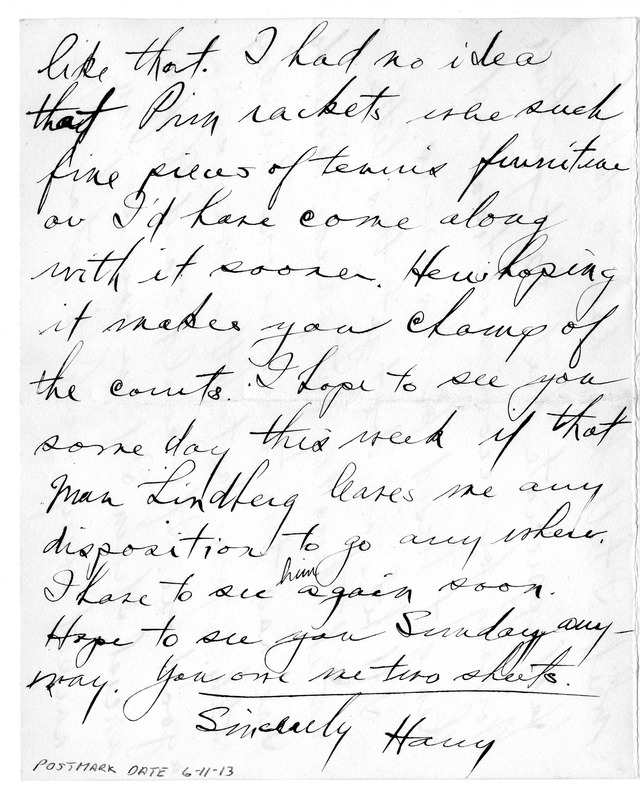 like that. I had no idea
that Prim rackets were such
fine pieces of tennis furniture
or I'd have come along
with it sooner. Here hoping
it makes you champ of
the courts. I hope to see you
some day this week if that
man Lindberg leaves me any
disposition to go any where.
I have to see him again soon.
Hope to see you Sunday any-
way. You owe me two sheets.
Sincerely Harry
POSTMARK DATE 6-11-13